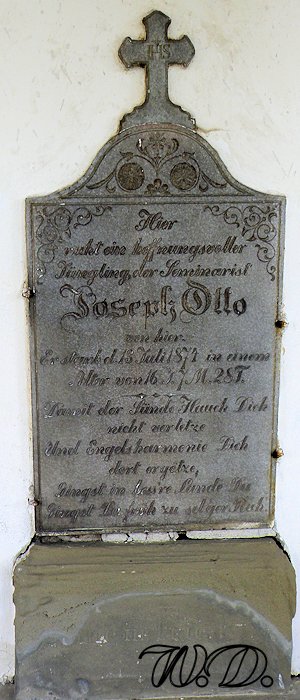 IHS
Hier
ruht ein hoffnungsvoller
Jüngling, der Seminarist
Joseph Otto
von hier.
Er starb d. 13. Juli 1871 in einem
Alter von 16 J. 7 M. 28 T.
Damit der Sünde Hauch Dich
nicht verletze
Und Engelsharmonie Dich
dort ergötze,
Gingst in Du
Gingst Du früh zu sel'ger Ruh.
W.D.